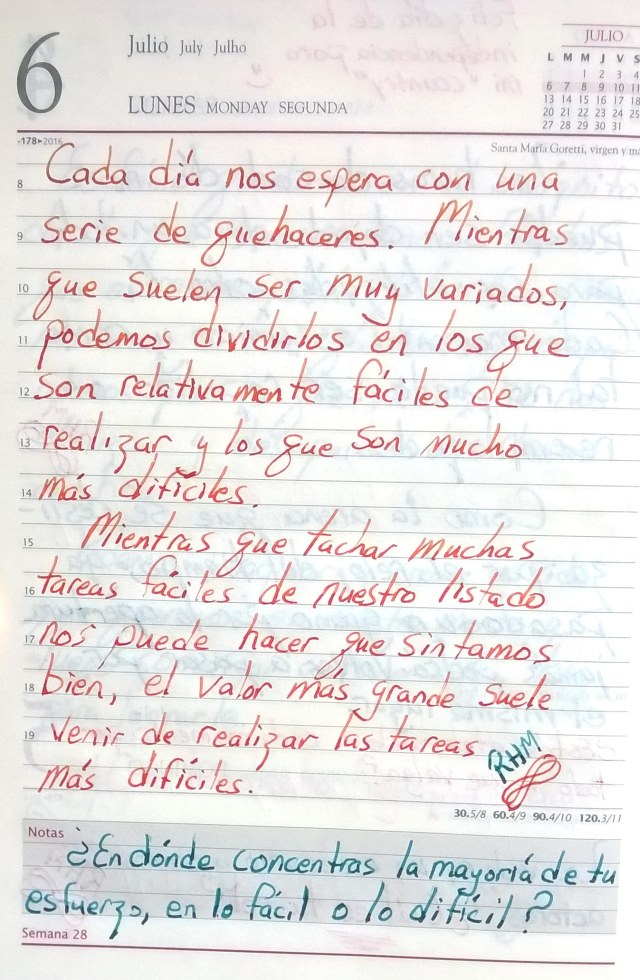 6
Julio July Julho
LUNES MONDAY SEGUNDA
JULIO
L M M J V S
1 2 3 4
6 7 8 9 10 11
13 14 15 16 17 18
20 21 22 23 24 25
27 28 29 30 31
-178▸2016
Santa María Goretti, virgen y ma
8 Cada día nos espera con una
9 serie de quehaceres. Mientras
10 que suelen ser muy variados,
11 podemos dividirlos en los que
12 son relativamente fáciles de
13 realizar y los que son mucho
14 más difíciles.
15 Mientras que tachar muchas
16 tareas fáciles de nuestro listado
17 nos puede hacer que sintamos
18 bien, el valor más grande suele
19 venir de realizar las tareas
más difíciles.
RHM
30.5/8 60.4/9 90.4/10 120.3/11
Notas
¿En dónde concentras la mayoriá de tu
esfuerzo, en lo fácil o lo difícil?
Semana 28